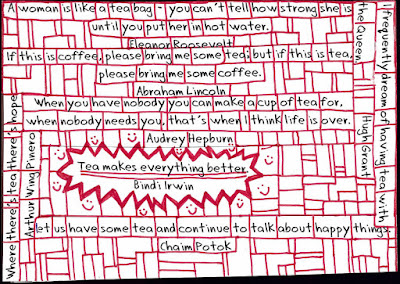 A woman is like a tea bag - you can't tell how strong she is
until you put her in hot water.
Eleanor Roosevelt
If this is coffee, please bring me some tea; but if this is tea,
please bring me some coffee.
Abraham Lincoln
When you have nobody you can make a cup of tea for,
when nobody needs you, that's when I think life is over.
Audrey Hepburn
Tea makes everything better
Bindi Irwin
let us have some tea and continue to talk about happy things.
Chaim Potok
Where there's tea there's hope
Arthur Wing Pinero
I frequently dream of having tea with
the Queen
Hugh Grant